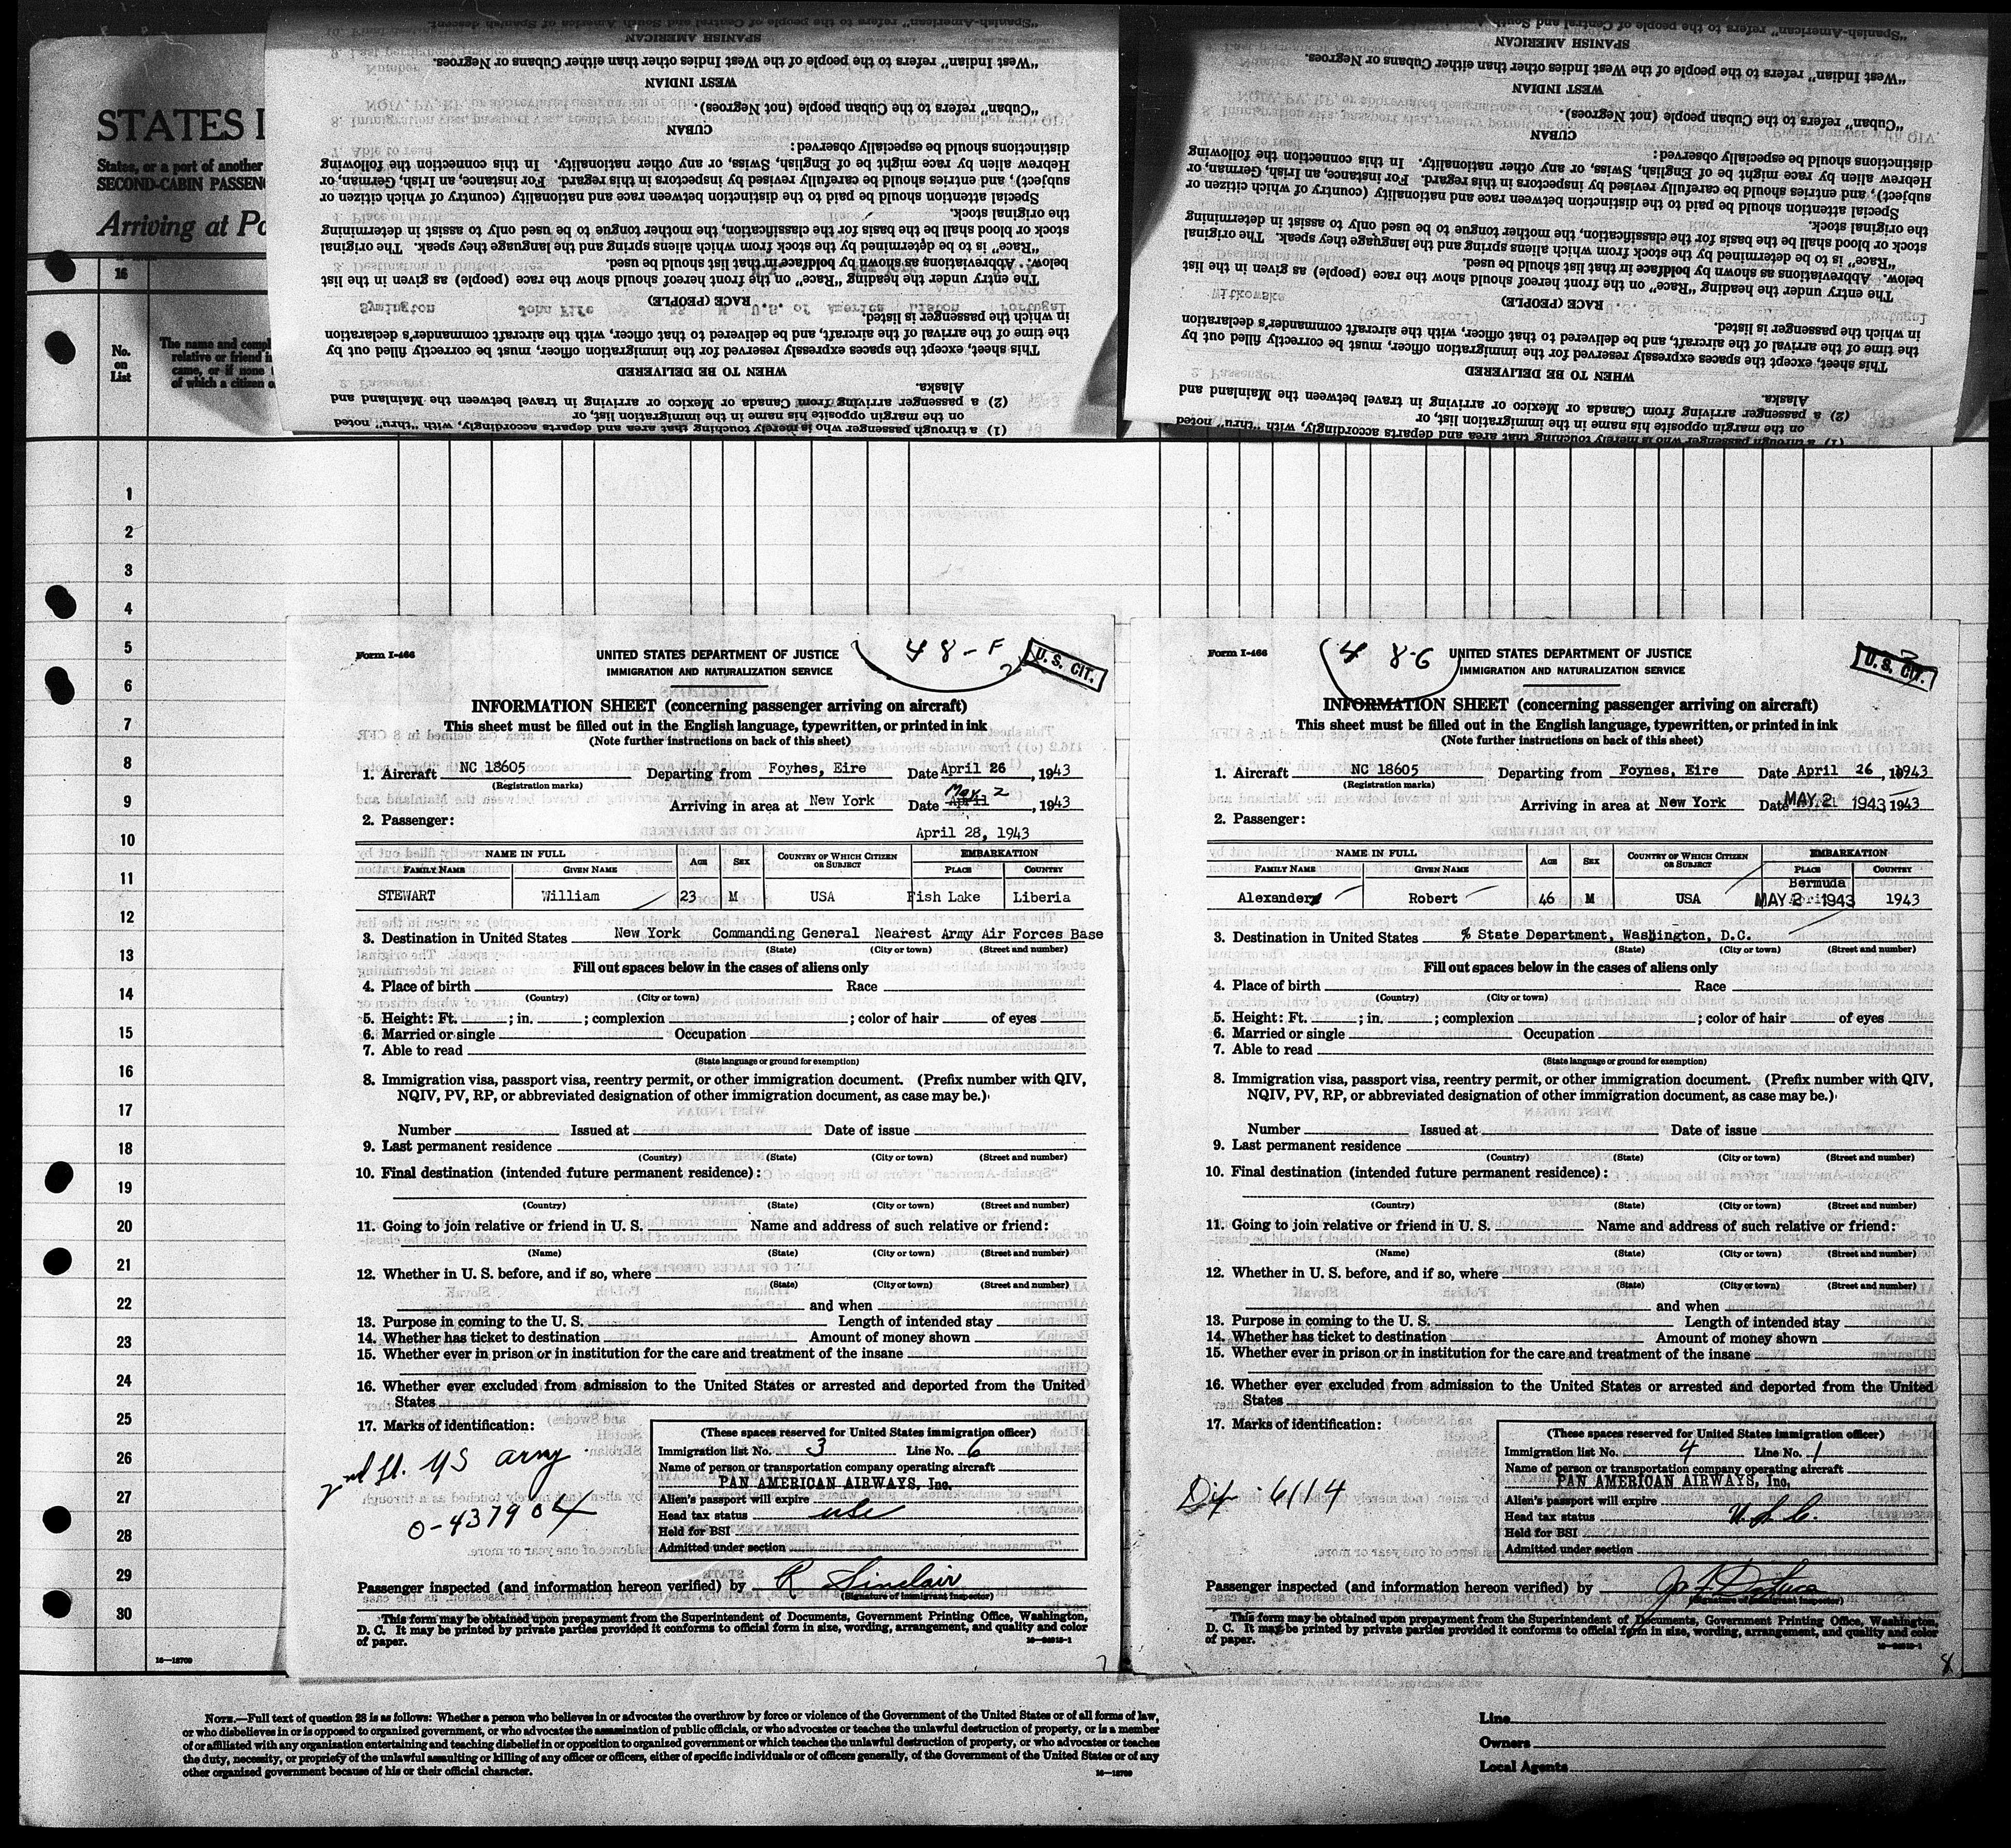 STATES I
States, or a port of another
SECOND-CABIN PASSENG
Arriving at Po
16
No.
on
List
The name and compl
relative or friend in
came, or if none
of which a citizen o
1
2
3
4
5
6
7
8
9
10
11
12
13
14
15
16
17
18
19
20
21
22
23
24
25
26
27
28
29
30
16—13709
(1) a through passenger who is merely touching that area and departs accordingly, with "thru" noted
on the margin opposite his name in the immigration list, or
(2) a passenger arriving from Canada or Mexico or arriving in travel between the Mainland and
Alaska.
WHEN TO BE DELIVERED
This sheet, except the spaces expressly reserved for the immigration officer, must be correctly filled out by
the time of the arrival of the aircraft, and be delivered to that officer, with the aircraft commander's declaration
in which the passenger is listed.
RACE (PEOPLE)
The entry under the heading "Race" on the front hereof should show the race (people) as given in the list
below. Abbreviations as shown by boldface in that list should be used.
"Race" is to be determined by the stock from which aliens spring and the language they speak. The original
stock or blood shall be the basis for the classification, the mother tongue to be used only to assist in determining
the original stock.
Special attention should be paid to the distinction between race and nationality (country of which citizen or
subject), and entries should be carefully revised by inspectors in this regard. For instance, an Irish, German, or
Hebrew alien by race might be of English, Swiss, or any other nationality. In this connection the following
distinctions should be especially observed:
CUBAN
"Cuban" refers to the Cuban people (not Negroes).
WEST INDIAN
"West Indian" refers to the people of the West Indies other than either Cubans or Negroes.
SPANISH AMERICAN
"Spanish-American" refers to the people of Central and South
(1) a through passenger who is merely touching that area and departs accordingly, with "thru" noted
on the margin opposite his name in the immigration list, or
(2) a passenger arriving from Canada or Mexico or arriving in travel between the Mainland and
Alaska.
WHEN TO BE DELIVERED
This sheet, except the spaces expressly reserved for the immigration officer, must be correctly filled out by
the time of the arrival of the aircraft, and be delivered to that officer, with the aircraft commander's declaration
in which the passenger is listed.
RACE (PEOPLE)
The entry under the heading "Race" on the front hereof should show the race (people) as given in the list
below. Abbreviations as shown by boldface in that list should be used.
"Race" is to be determined by the stock from which aliens spring and the language they speak. The original
stock or blood shall be the basis for the classification, the mother tongue to be used only to assist in determining
the original stock.
Special attention should be paid to the distinction between race and nationality (country of which citizen or
subject), and entries should be carefully revised by inspectors in this regard. For instance, an Irish, German, or
Hebrew alien by race might be of English, Swiss, or any other nationality. In this connection the following
distinctions should be especially observed:
CUBAN
"Cuban" refers to the Cuban people (not Negroes).
WEST INDIAN
"West Indian" refers to the people of the West Indies other than either Cubans or Negroes.
SPANISH AMERICAN
"Spanish-American" refers to the people of Central and South
48-F
U.S. CIT.
Form I-466
UNITED STATES DEPARTMENT OF JUSTICE
IMMIGRATION AND NATURALIZATION SERVICE
INFORMATION SHEET (concerning passenger arriving on aircraft)
This sheet must be filled out in the English language, typewritten, or printed in ink
(Note further instructions on back of this sheet)
1. Aircraft NC 18605 Departing from Foyhes, Eire Date April 26, 1943
(Registration marks)
Arriving in area at New York Date April May 2, 1943
2. Passenger:
April 28, 1943
NAME IN FULL AGE SEX COUNTRY OF WHICH CITIZEN OR SUBJECT EMBARKATION
FAMILY NAME GIVEN NAME PLACE COUNTRY
STEWART William 23 M USA Fish Lake Liberia
3. Destination in United States New York Commanding General Nearest Army Air Forces Base
(State) (City or town) (Street and number)
Fill out spaces below in the cases of aliens only
4. Place of birth Race
(Country) (City or town)
5. Height: Ft. ; in. ; complexion ; color of hair of eyes
6. Married or single Occupation
7. Able to read
(State language or ground for exemption)
8. Immigration visa, passport visa, reentry permit, or other immigration document. (Prefix number with QIV,
NQIV, PV, RP, or abbreviated designation of other immigration document, as case may be.)
Number Issued at Date of issue
9. Last permanent residence
(Country) (State) (City or town) (Street and number)
10. Final destination (intended future permanent residence):
(Country) (State) (City or town) (Street and number)
11. Going to join relative or friend in U. S. Name and address of such relative or friend:
(Name) (State) (City or town) (Street and number)
12. Whether in U. S. before, and if so, where
(State) (City or town) (Street and number)
and when
13. Purpose in coming to the U. S. Length of intended stay
14. Whether has ticket to destination Amount of money shown
15. Whether ever in prison or in institution for the care and treatment of the insane
16. Whether ever excluded from admission to the United States or arrested and deported from the United
States
17. Marks of identification:
2nd Lt. US Army
O-437904
(These spaces reserved for United States immigration officer)
Immigration list No. 3 Line No. 6
Name of person or transportation company operating aircraft
PAN AMERICAN AIRWAYS, Inc.
Alien's passport will expire
Head tax status usc
Held for BSI
Admitted under section
Passenger inspected (and information hereon verified) by R Sinclair
(Signature of immigrant inspector)
This form may be obtained upon prepayment from the Superintendent of Documents, Government Printing Office, Washington,
D. C. It may be printed by private parties provided it conforms to official form in size, wording, arrangement, and quality and color
of paper.
7
48-G
U.S. CIT.
Form I-466
UNITED STATES DEPARTMENT OF JUSTICE
IMMIGRATION AND NATURALIZATION SERVICE
INFORMATION SHEET (concerning passenger arriving on aircraft)
This sheet must be filled out in the English language, typewritten, or printed in ink
(Note further instructions on back of this sheet)
1. Aircraft NC 18605 Departing from Foynes, Eire Date April 26, 1943
(Registration marks)
Arriving in area at New York Date MAY 2 1943 1943
2. Passenger:
NAME IN FULL AGE SEX COUNTRY OF WHICH CITIZEN OR SUBJECT EMBARKATION
FAMILY NAME GIVEN NAME PLACE COUNTRY
Alexander Robert 46 M USA Bermuda MAY 2 1943 1943
3. Destination in United States % State Department, Washington, D.C.
(State) (City or town) (Street and number)
Fill out spaces below in the cases of aliens only
4. Place of birth Race
(Country) (City or town)
5. Height: Ft. ; in. ; complexion ; color of hair of eyes
6. Married or single Occupation
7. Able to read
(State language or ground for exemption)
8. Immigration visa, passport visa, reentry permit, or other immigration document. (Prefix number with QIV,
NQIV, PV, RP, or abbreviated designation of other immigration document, as case may be.)
Number Issued at Date of issue
9. Last permanent residence
(Country) (State) (City or town) (Street and number)
10. Final destination (intended future permanent residence):
(Country) (State) (City or town) (Street and number)
11. Going to join relative or friend in U. S. Name and address of such relative or friend:
(Name) (State) (City or town) (Street and number)
12. Whether in U. S. before, and if so, where
(State) (City or town) (Street and number)
and when
13. Purpose in coming to the U. S. Length of intended stay
14. Whether has ticket to destination Amount of money shown
15. Whether ever in prison or in institution for the care and treatment of the insane
16. Whether ever excluded from admission to the United States or arrested and deported from the United
States
17. Marks of identification:
Dip - 6114
(These spaces reserved for United States immigration officer)
Immigration list No. 4 Line No. 1
Name of person or transportation company operating aircraft
PAN AMERICAN AIRWAYS, Inc.
Alien's passport will expire
Head tax status U.S.C.
Held for BSI
Admitted under section
Passenger inspected (and information hereon verified) by
(Signature of immigrant inspector)
This form may be obtained upon prepayment from the Superintendent of Documents, Government Printing Office, Washington,
D. C. It may be printed by private parties provided it conforms to official form in size, wording, arrangement, and quality and color
of paper.
8
NOTE.—Full text of question 28 is as follows: Whether a person who believes in or advocates the overthrow by force or violence of the Government of the United States or of all forms of law,
or who disbelieves in or is opposed to organized government, or who advocates the assassination of public officials, or who advocates or teaches the unlawful destruction of property, or is a member
of or affiliated with any organization entertaining and teaching disbelief in or opposition to organized government or which teaches the unlawful destruction of property, or who advocates or teaches
the duty, necessity, or propriety of the unlawful assaulting or killing of any officer or officers, either of specific individuals or of officers generally, of the Government of the United States or of any
other organized government because of his or their official character.
16—13709
Line
Owners
Local Agents